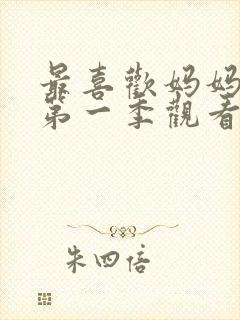 最喜歡妈妈
第一季觀看
朱四倍